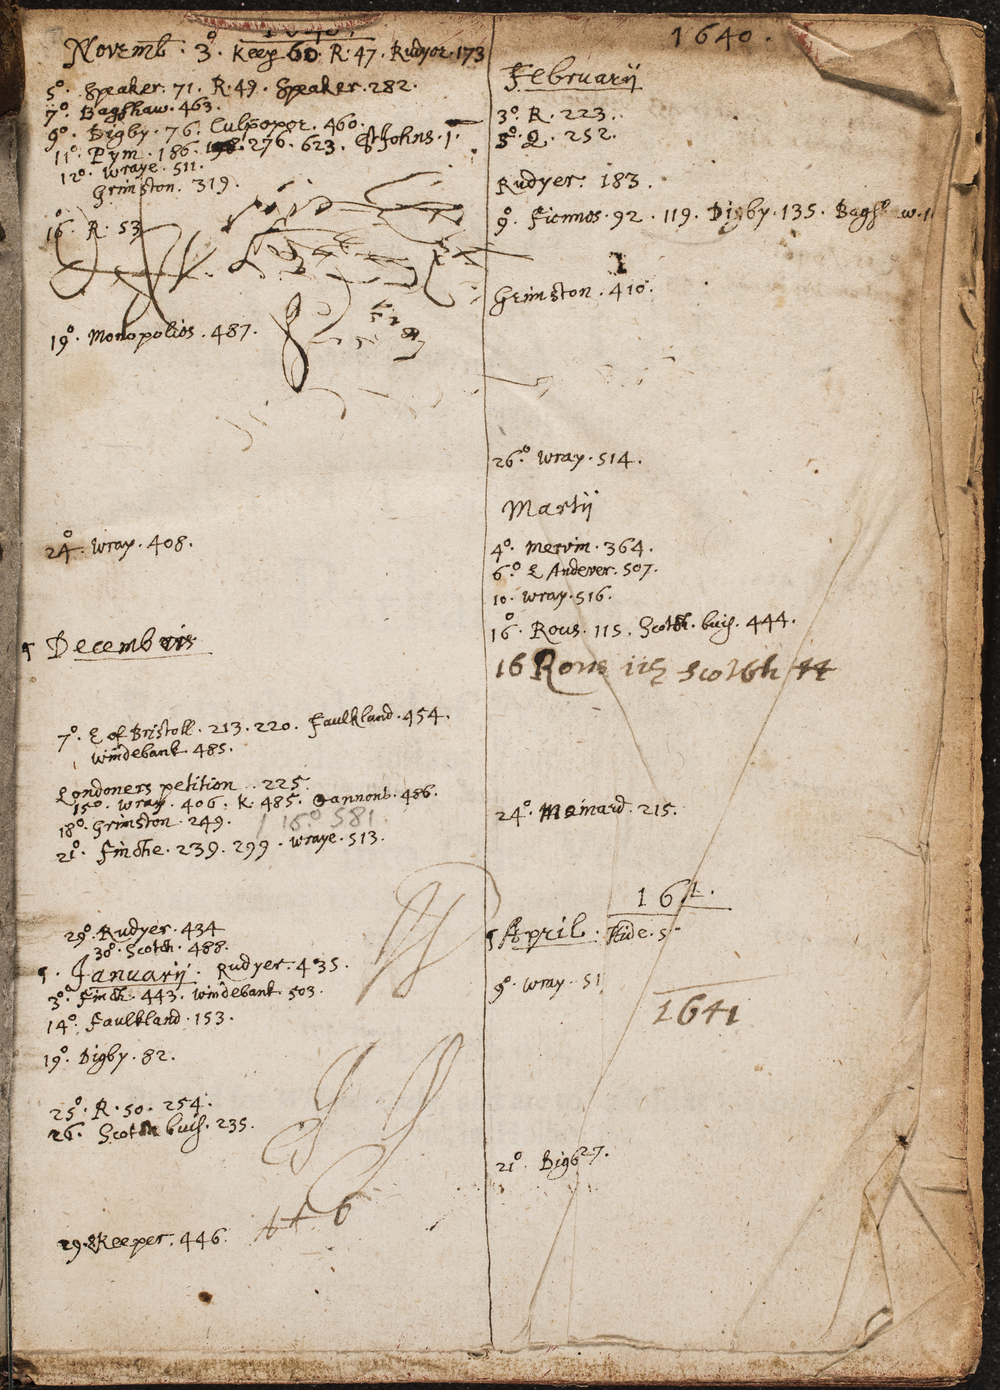 1640.
Novemb. 3º. Keep. 60. R. 47. Rudyer. 173
5º. Speaker. 71. R. 49. Speaker. 282.
7º. Bagshaw. 463.
9º. Digby. 76. Culpeper. 460.
11º. Pym. 186. 198. 276. 623. St Johns. 1.
12º. Wraye. 511.
Grimston. 319.
16º. R. 53
19º. Monopolies. 487.
24º. Wray. 408.
Decembris
7º. E of Bristoll. 213. 220. Faulkland. 454.
Windebank. 485.
Londoners petition.. 225.
15º. Wray. 406. K. 485. Cannons. 486.
18º. Grimston. 249.
16º 581
21º. Finche. 239. 299. Wraye. 513.
29º. Rudyer. 434
30º. Scotch. 488.
Januarij. Rudyer. 435.
3º. Finch. 443. Windebank. 503.
14º. Faulkland. 153.
19º. Digby. 82.
25º. R. 50. 254.
26. Scotch buis. 235.
29. Keeper. 446.
446
1640.
Februarij
3º. R. 223.
5º. R. 252.
Rudyer. 183.
9º. Fiennes. 92. 119. Digby. 135. Bagshaw. 1
Grimston. 410.
26º. Wray. 514.
Martij
4º. Mervin. 364.
6º. L Andever. 507.
10. Wray. 516.
16º. Rous. 115. Scotch. buis. 444.
16 Rous 115 Scotch 44
24º. Mainard. 215.
164.
April. Hide. 5
9º. Wray. 51
1641
21º. Digb 27.